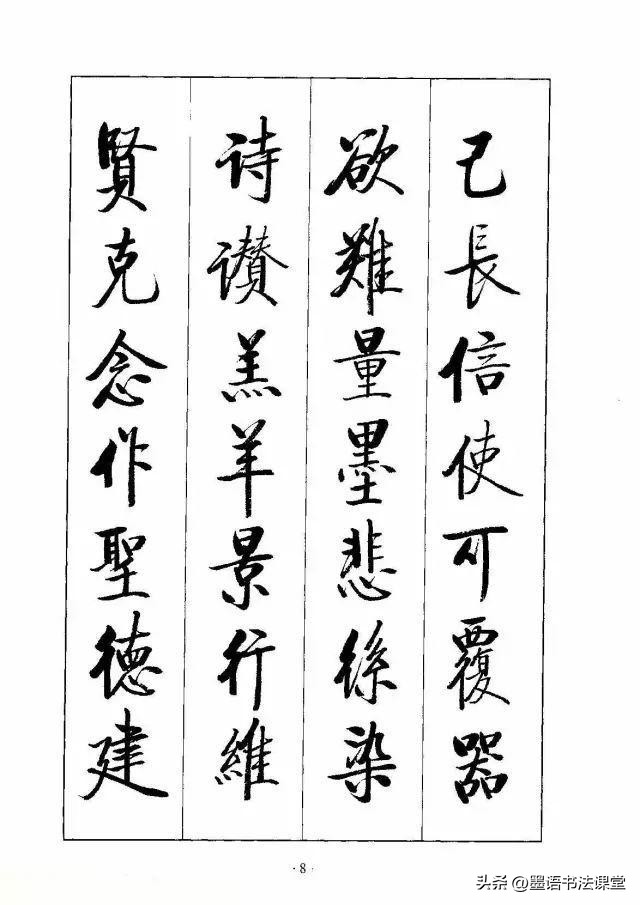 己長信使可覆器
欲難量墨悲絲染
詩讚羔羊景行維
賢克念作聖德建
·8·
头条 @墨语书法课堂